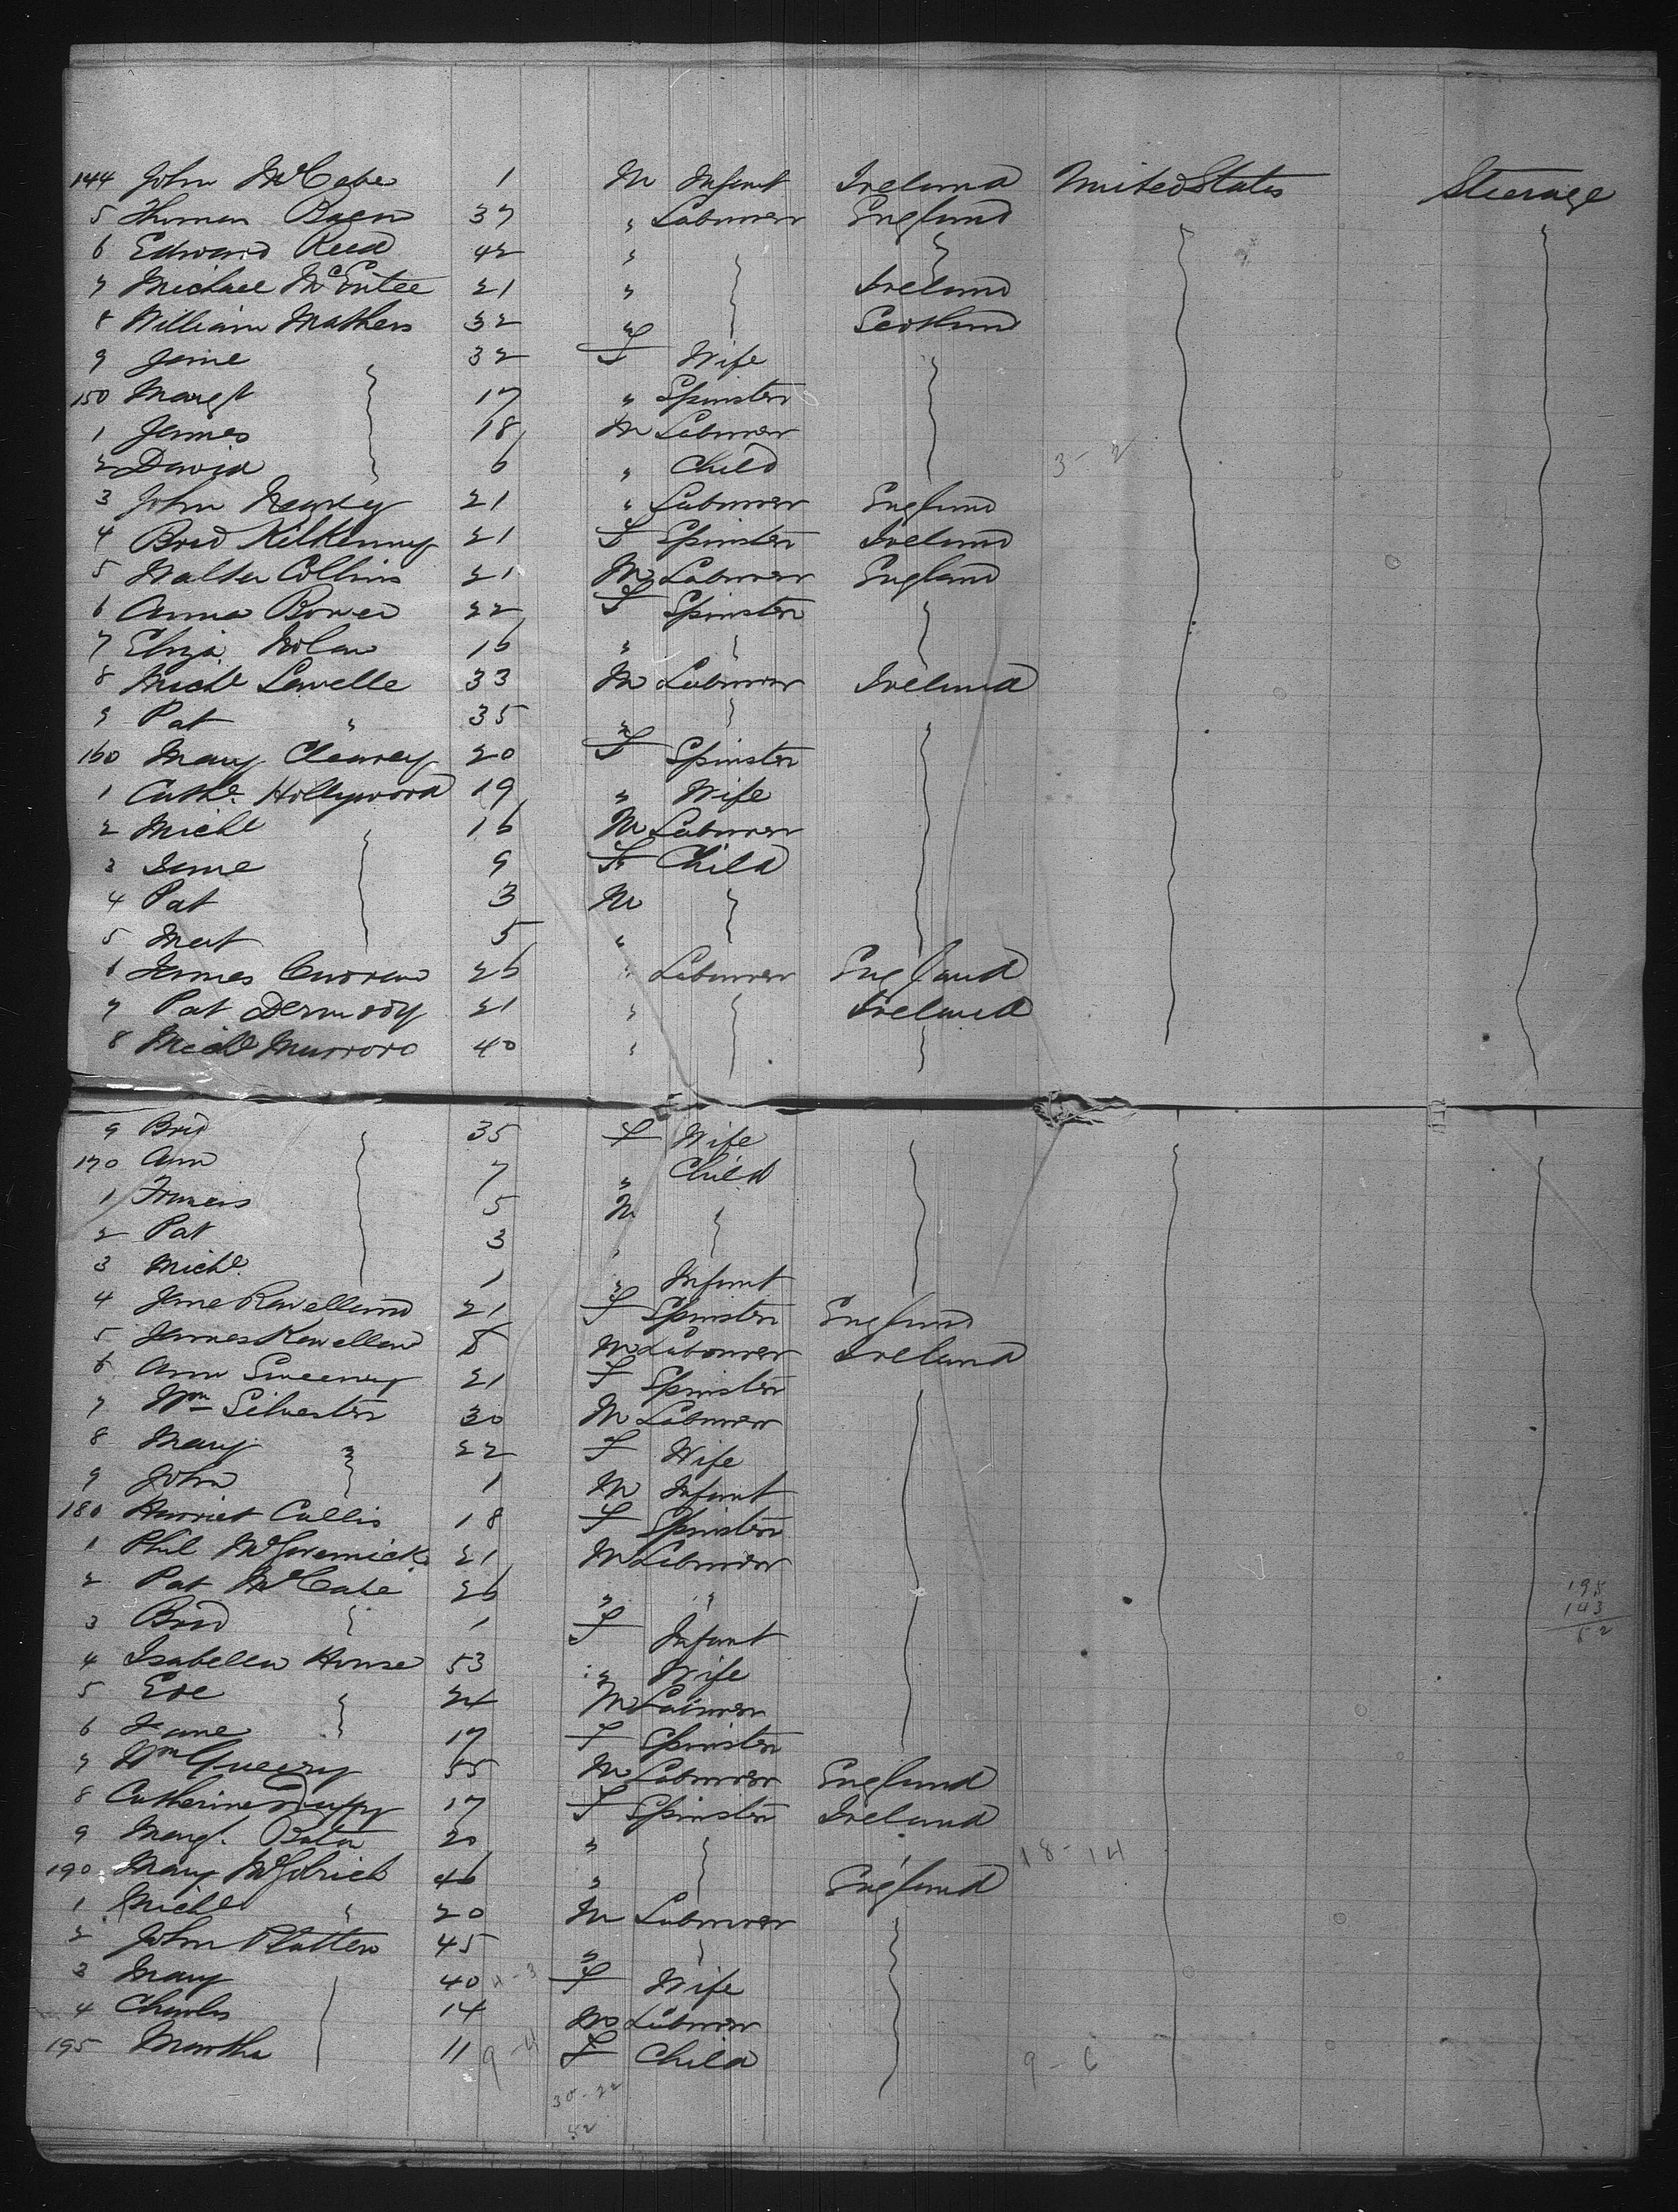 144 John McCabe 1 M Infant Ireland United States Steerage
5 Thomas 37 " Labourer England
6 Edward Reed 42 "
7 Michael McEntee 21 " Ireland
8 William Mathers 32 " Scotland
9 Jane 32 F Wife
150 Margt 17 " Spinster
1 James 18 M Labourer
2 David 6 " Child 3 - 2
3 John 21 " Labourer England
4 Brid Kilkenny 21 F Spinster Ireland
5 Walter Collins 21 M Labourer England
6 Anna Bower 22 F Spinster
7 Eliza Nolan 16 "
8 Michl Lavelle 33 M Labourer Ireland
9 Pat " 35 "
160 Mary Clearey 20 F Spinster
1 Cathe Hollywood 19 " Wife
2 Michl 16 M Labourer
3 Jane 9 F Child
4 Pat 3 M
5 Mat 5 "
6 James Curran 26 " Labourer England
7 Pat Dermody 21 " Ireland
8 Michl 40 "
9 Brid 35 F Wife
170 Ann 7 " Child
1 Francis 5 M
2 Pat 3 "
3 Michl 1 " Infant
4 Jane 21 F Spinster England
5 James 8 M Labourer Ireland
6 Ann Sweeney 21 F Spinster
7 Wm Silvester 30 M Labourer
8 Mary " 22 F Wife
9 John 1 M Infant
180 Harriet Cullis 18 F Spinster
1 Phil 21 M Labourer
2 Pat McCabe 26 " "
3 Brid 1 F Infant
4 Isabella House 53 " Wife
5 24 M Labourer
6 Jane 17 F Spinster
7 Wm 55 M Labourer England
8 Catherine Duffy 17 F Spinster Ireland
9 Margt 20 " 18 - 14
190 Mary 46 " England
1 Michl " 20 M Labourer
2 John Platten 45 "
3 Mary 40 F Wife
4 Charles 14 M Labourer
195 Martha 11 F Child
9 - 4
9 - 6
30 - 22
52
195
143
52